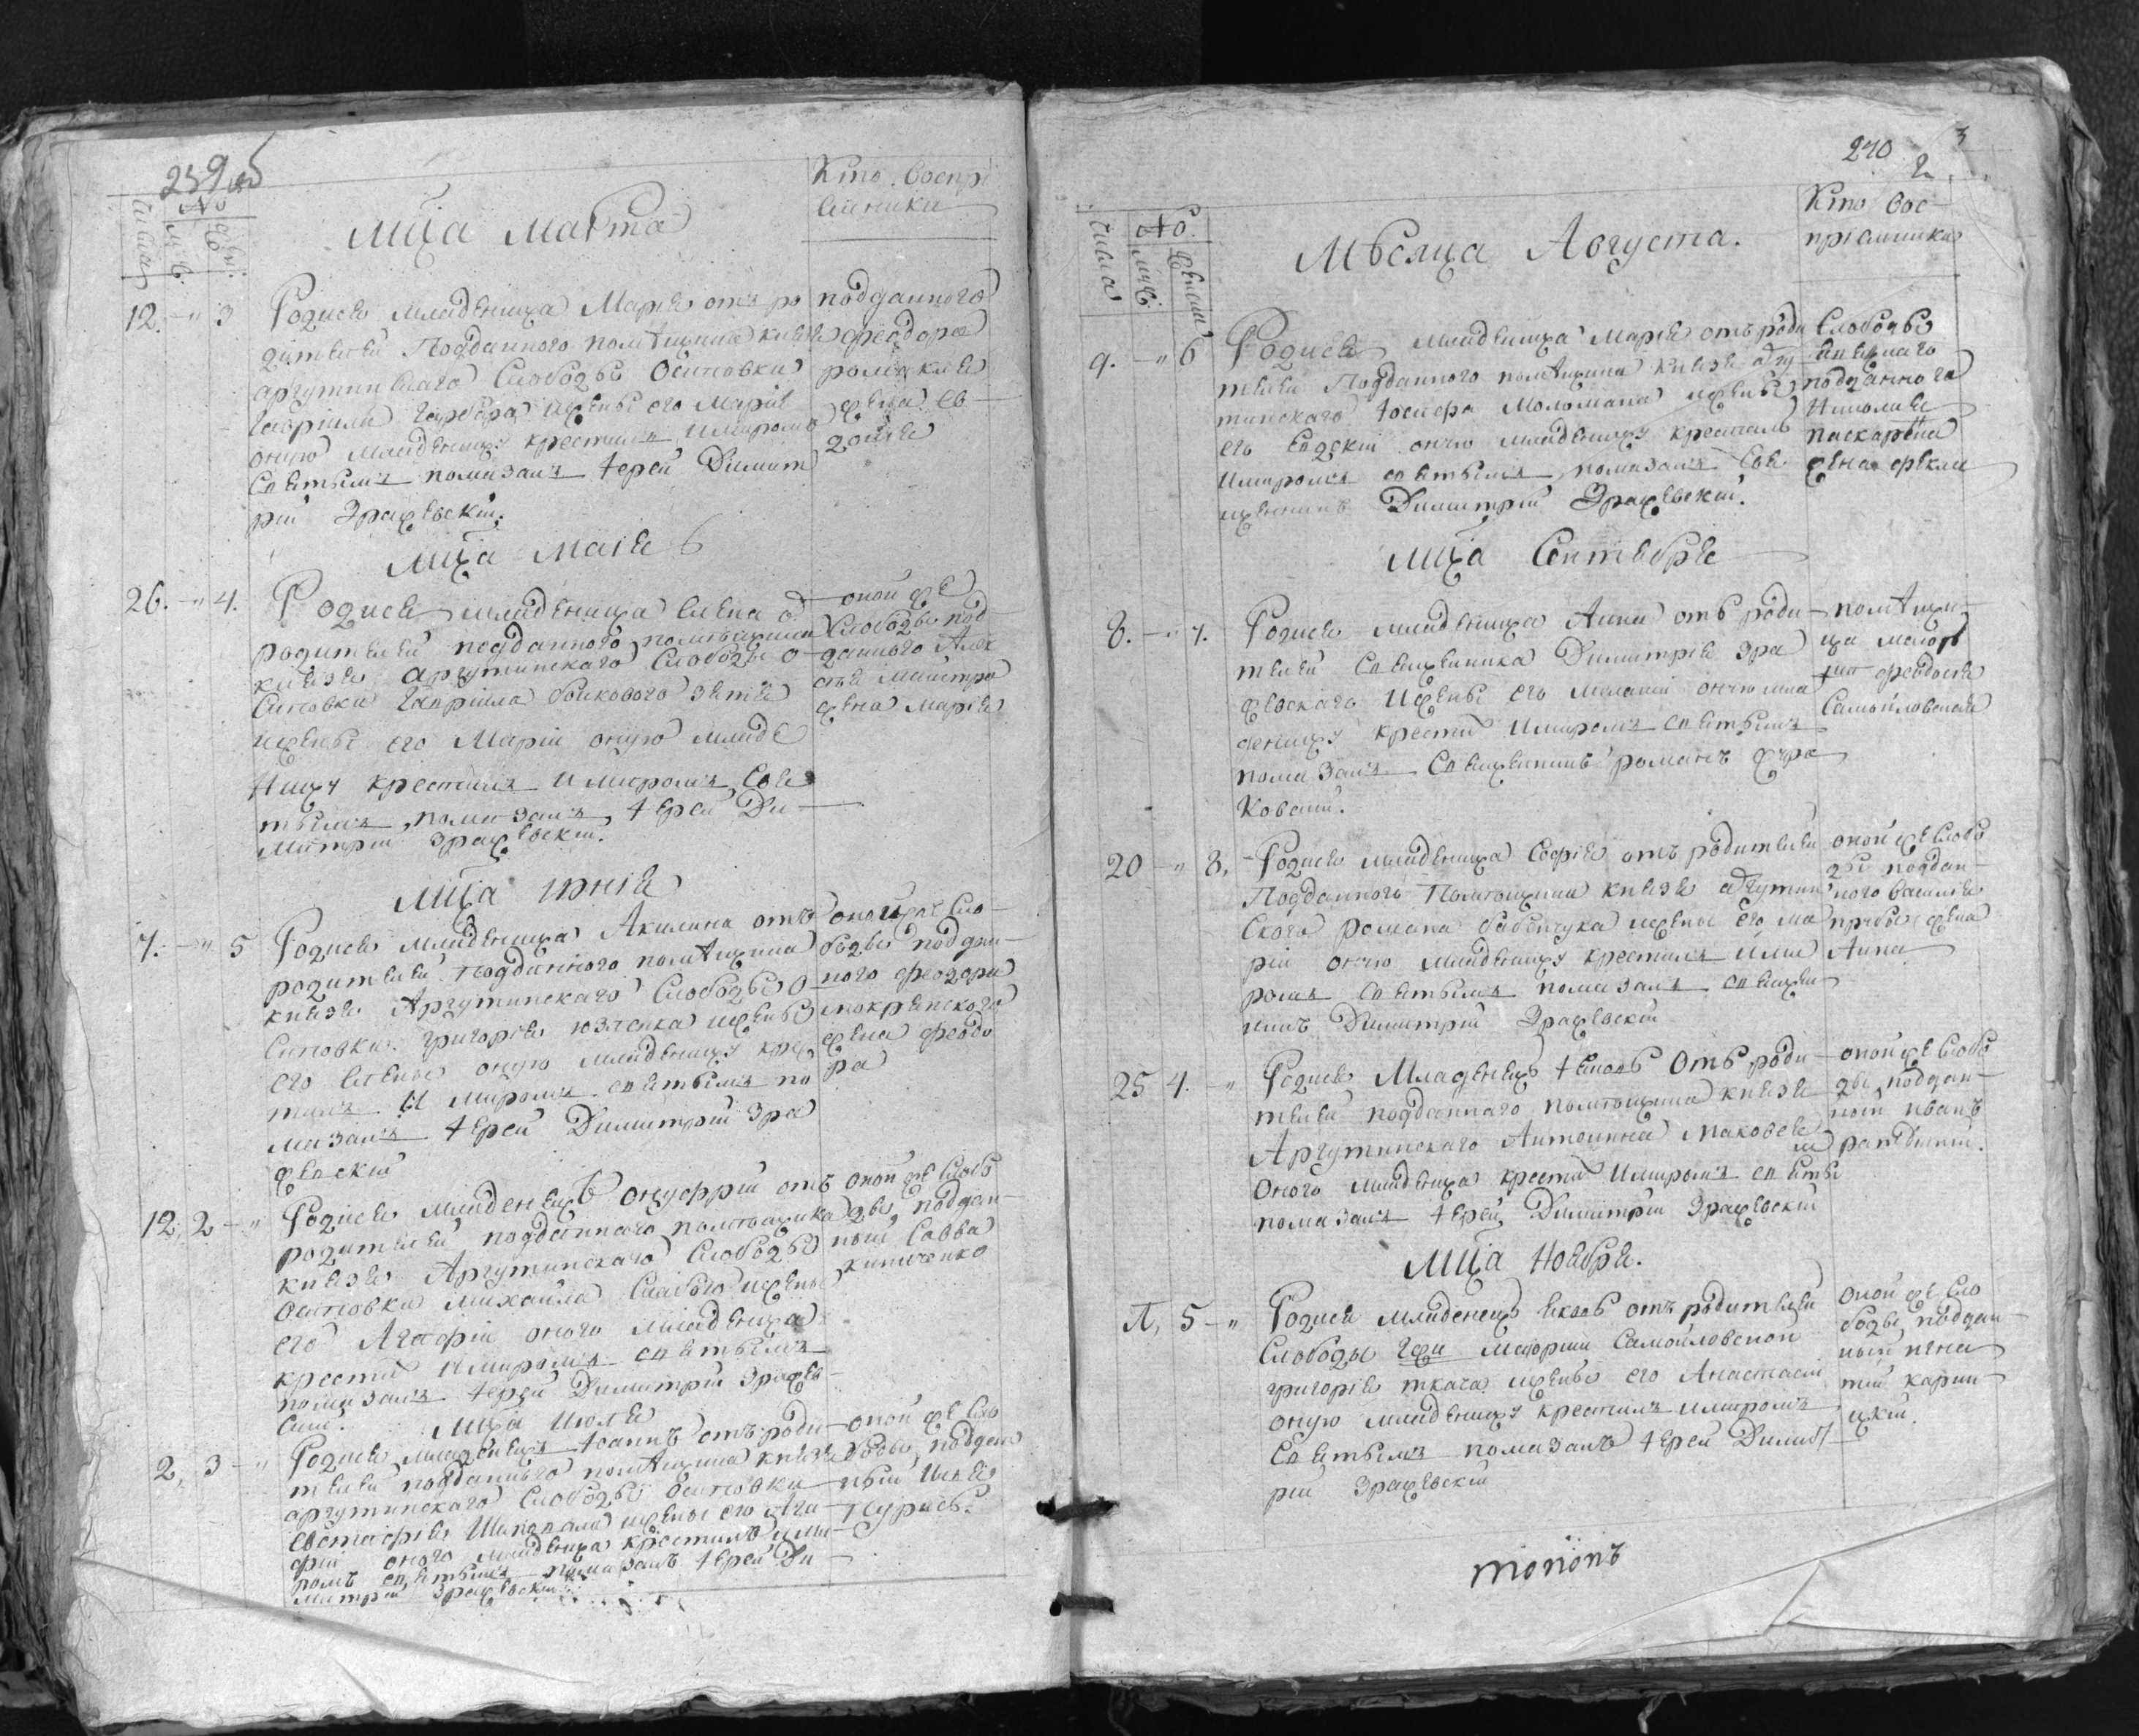 239 об
Числа
№
м: п:
жен:
Мца Марта
Кто воспрі
емники
12. " 3 Родися младеница Марія отъ ро
дителей Подданного помѣщика князя
аргутинскаго Слободы Осиповки
Гавріила Гарбера ижены его Маріи
оную младеницу крестилъ имиромъ
святымъ помазалъ Іерей Димит
рій Эражевскій.
подданного
феодора
романа
жена ев
докія
Мца Маія
26. " 4. Родися младеница Елена о
родителей подданного помѣщика
князя аргутинскаго Слободы О
сиповки Гавріила зятя
ижены его Маріи оную младе
ницу крестилъ имиромъ свя
тымъ помазалъ Іерей Ди
митрій Эражевскій.
оной же
Слободы под
данного Алек
сѣя
жена Марія
Мца Іюнія
7. " 5 Родися младеница Акилина отъ
родителей подданного помѣщика
князя Аргутинскаго Слободы О
сиповки Григорія ижены
его Елены оную младеницу кре
стилъ И миромъ святымъ по
мазалъ Іерей Димитрій Эра
жевскій
оной же Сло
боды поддан
ного феодора
мокрянского
жена феодо
ра
12, 2 " Родися младенецъ Онуфрій отъ
родителей подданнаго помѣщика
князя Аргутинскаго Слободы
Осиповки Михаила Слабого ижены
его Агафіи оного младенца
крести имиромъ святымъ
помазалъ Іерей Димитрій Эражев
скій.
оной же Слобо
ды, поддан
ный Савва
киниченко
Мца Июля
2, 3 " Родися младенецъ Іоаннъ отъ роди
телей подданнаго помѣщика князя
аргутинскаго Слободы Осиповки
Евстафія ижены его Ага
фіи оного младенца крестилъ ими
ромъ святымъ помазалъ Іерей Ди
митрій Эражевскій
оной же Сло
боды, поддан
ный Илія
Курись.
240
2
3
Числа
№.
м: п:
женск
Мѣсяца Августа.
Кто вос
пріемники
9. " 6 Родися младеница Марія отъ роди
телей Подданного помѣщика князя аргу
тинскаго Іосифа Моломана ижены
его Евдокіи оную младеницу крестилъ
имиромъ святымъ помазалъ Свя
щенникъ Димитрій Эражевскій.
Слободы
подданного
Николая
паскаря
жена фекла
Мца Сентября
8. " 7. Родися младеница Анна отъ роди
телей Священника Димитрія Эра
жевскаго Ижены его Меланіи оную мла
деницу крести имиромъ святымъ
помазалъ Священникъ романъ Жура
ковскій.
помѣщи
ца маіор
ша феодосія
Самойловская
20 " 8, Родися младеница Софія отъ родителей
Подданного Помѣщика князя аргутин
ского романа бабенчука ижены его Ма
ріи оную младеницу крестилъ ими
ромъ святымъ помазалъ священ
никъ Димитрій Эражевскій
оной же Слобо
ды поддан
ного василія
жена
Анна
25 4. " Родися Младенецъ Іаковъ Отъ роди
телей подданнаго помѣщика князя
Аргутинскаго Антонина Маковея
Оного младенца крести Имиромъ святы
м
помазалъ Іерей Димитрій Эражевскій
оной же Слобо
ды, поддан
ный иванъ
Мца Ноября.
Л, 5 " Родися младенецъ Іаковъ отъ родителей
Слободы Геи Маіорши Самойловской
григорія ткача ижены его Анастасіи
оную младеницу крестилъ имиромъ
Святымъ помазалъ Іерей Димит
рій Эражевскій
оной же Сло
боды поддан
ный игна
тій карни
цкій.